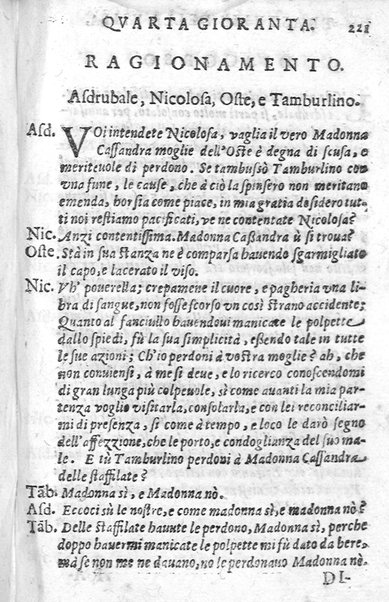 QVARTA GIORANTA. 221
RAGIONAMENTO.
Asdrubale, Nicolosa, Oste, e Tamburlino.
Asd. VOi intendete Nicolosa, vaglia il vero Madonna
Cassandra moglie dell'Oste è degna di scusa, e
meriteuole di perdono. Se tambussò Tamburlino con
vna fune, le cause, che à ciò la spinsero non meritano
emenda, hor sia come piace, in mia gratia desidero tut-
ti noi restiamo pacificati, ve ne contentate Nicolosa?
Nic. Anzi contentissima. Madonna Caßandra ù si troua?
Oste. Stà in sua stanza ne è comparsa hauendo sgarmigliato
il capo, e lacerato il viso.
Nic. Vh' pouerella; crepamene il cuore, e pagheria vna li-
bra di sangue, non fosse scorso vn così strano accidente;
Quanto al fanciullo hauendoui manicate le polpette
dallo spiedi, fù la sua simplicità, eßendo tale in tutte
le sue azioni; Ch'io perdoni à vostra moglie? ah, che
non conuiensi, à me si deue, e lo ricerco conoscendomi
di gran lunga più colpeuole, sì come auanti la mia par-
tenza voglio visitarla, consolarla, e con lei reconciliar-
mi di presenza, sì come à tempo, e loco le darò segno
dell'affezzione, che le porto, e condoglianza del suo ma-
le. E tù Tamburlino perdoni à Madonna Cassandra
delle staffilate?
Tãb. Madonna sì, e Madonna nò.
Asd. Eccoci sù le nostre, e come madonna sì, e madonna nò?
Tãb. Delle staffilate haunte le perdono, Madonna sì, perche
doppo hauermi manicate le polpette mi fù dato da bere,
ma se non me ne dauano, no le perdonauo Madonna nò.
DI-